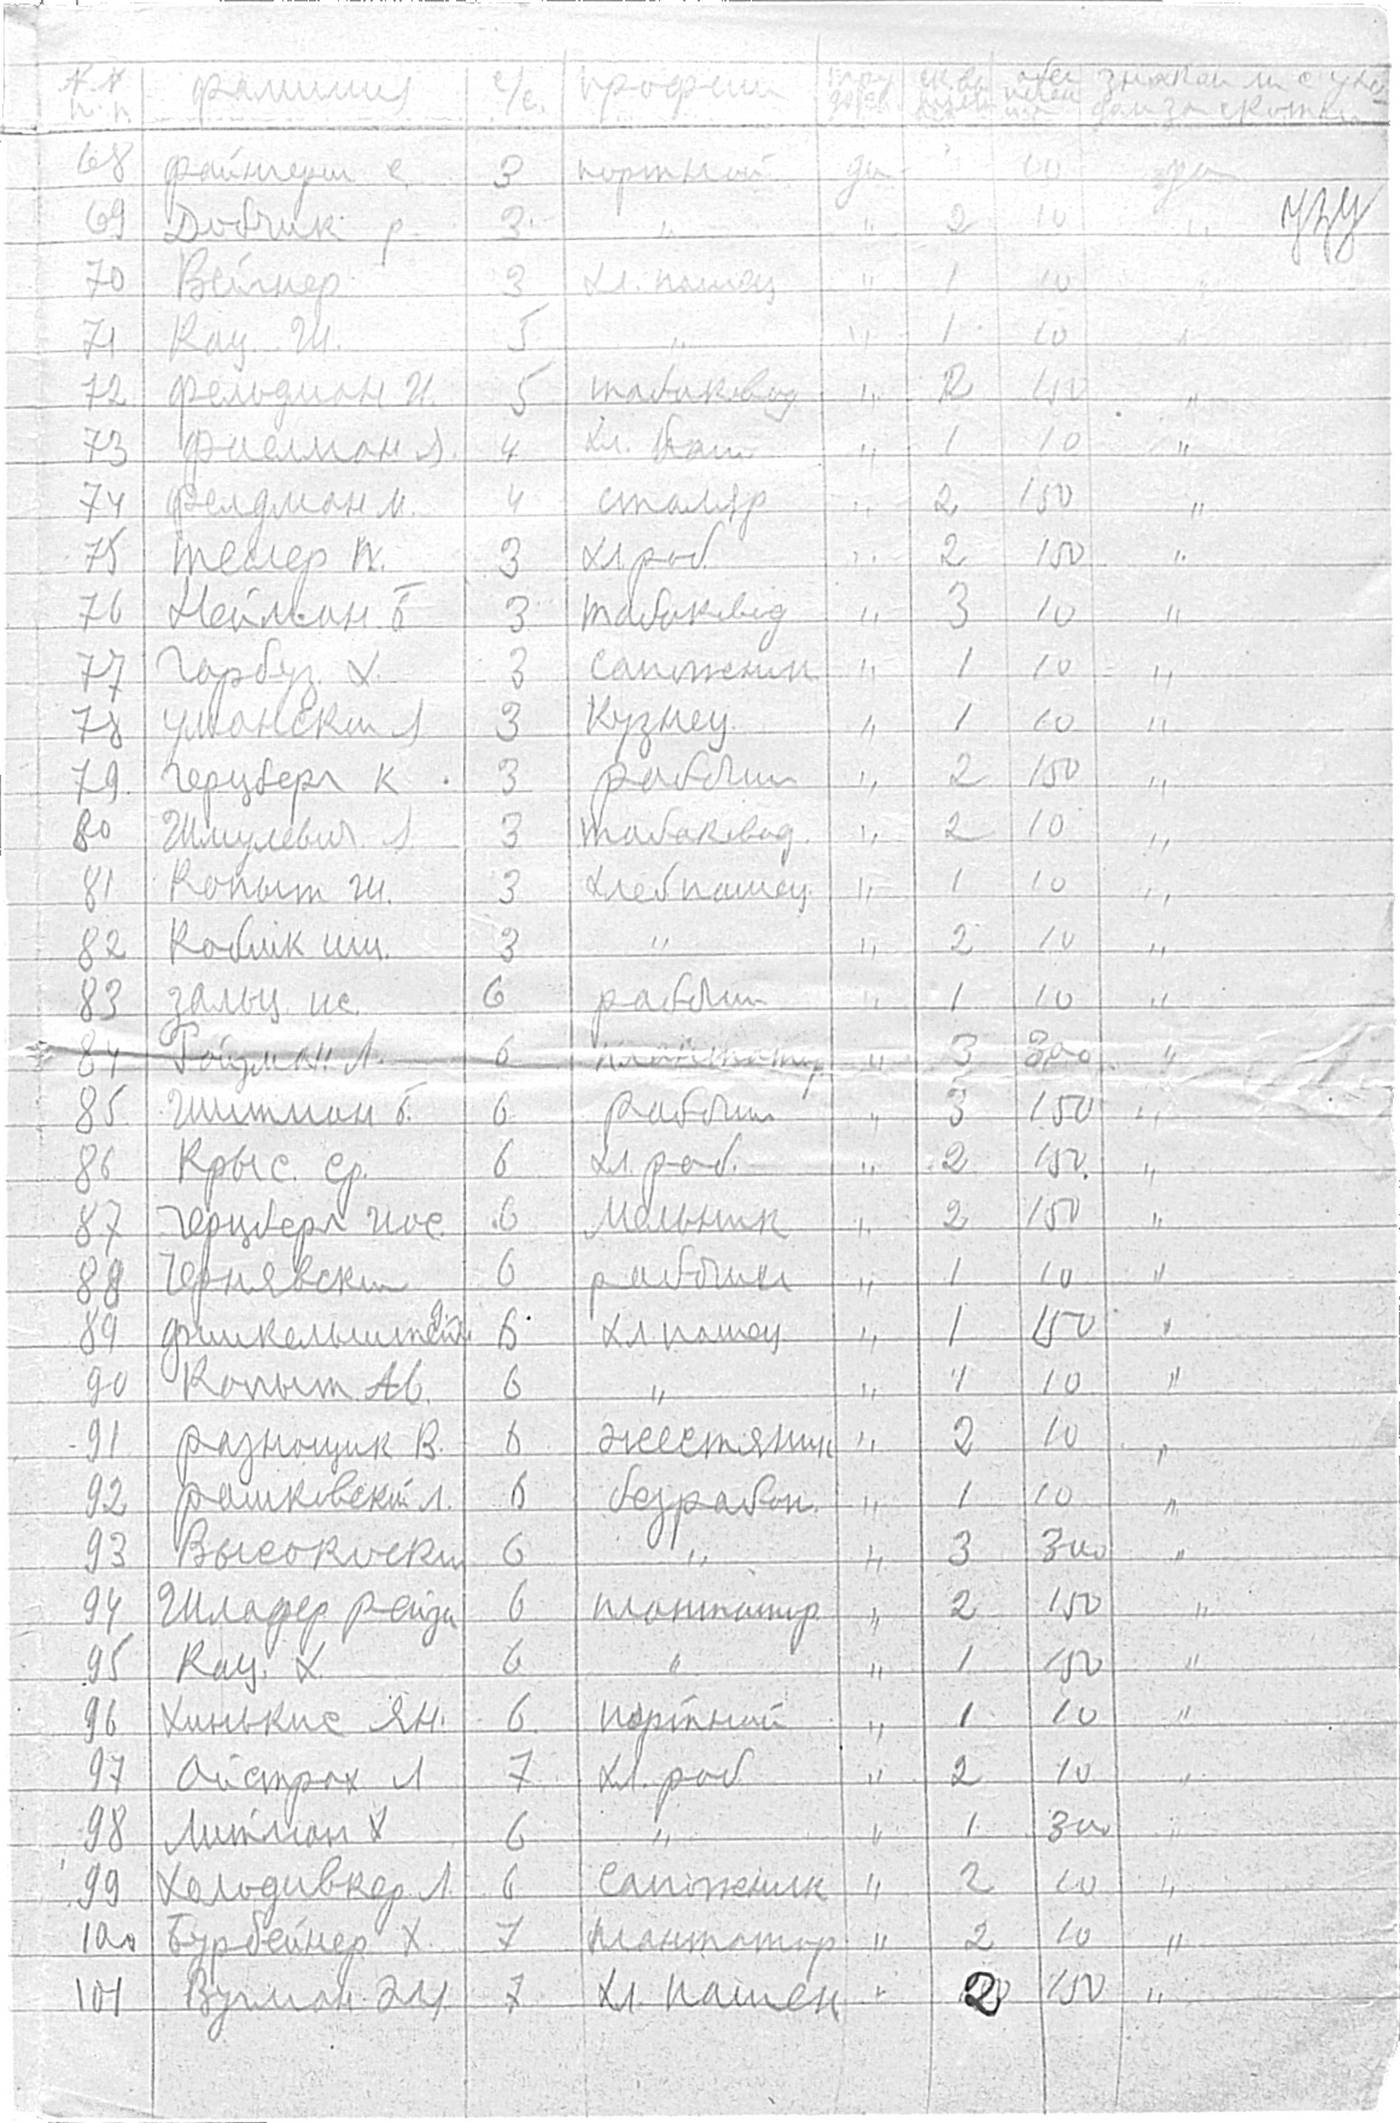 № № п. п. фамилия с/с. професии
68 файнгерш с 3 портной да 10 да
69 Добчик р. 3 " " 2 10 "
70 Вейнер 3 хл. пашец " 1 10 "
71 Кац Ш. 5 " " 1 10 "
72 фельдман И. 5 табаковод " 2 150 "
73 4 хл. " 1 10 "
74 фелдман М. 4 столяр " 2 150 "
75 3 хл. роб " 2 150 "
76 Нейман Б 3 табаковод " 3 10 "
77 Гарбуз Х. 3 сапожник " 1 10 "
78 Уманский Л 3 Кузнец " 1 10 "
79 Герцберг К 3 рабочий " 2 150 "
80 Шмулевич Л 3 табаковод " 2 10 "
81 Копыт Ш. 3 хлебпашец " 1 10 "
82 Коблик ши. 3 " " 2 10 "
83 зальц ис. 6 рабочий " 1 10 "
84 Гойзман Л. 6 плантатор " 3 300 "
85 Шитман Б. 6 рабочий " 3 150 "
86 Крыс Ср. 6 хл. роб. " 2 150 "
87 Герцберг Иос. 6 Мельник " 2 150 "
88 Чернявский 6 рабочий " 1 10 "
89 финкельштейн 6 хл пашец " 1 150 "
90 Копыт Ав. 6 " " 1 10 "
91 разнощик В. 6 жестяник " 2 10 "
92 рашковский л. 6 безработ. " 1 10 "
93 6 " " 3 300 "
94 Шлафер рейзя 6 плантатор " 2 150 "
95 Кац Х. 6 " " 1 150 "
96 Хинькис Ян. 6 портной " 1 10 "
97 Ойстрах Л 7 хл. роб " 2 10 "
98 Литман Х 6 " " 1 300 "
99 Холодивкер Л. 6 Сапожник " 2 10 "
100 Бурбейнер Х. 7 плантатор " 2 10 "
101 Вугман Эл. 7 хл. пашец " 2 150 "